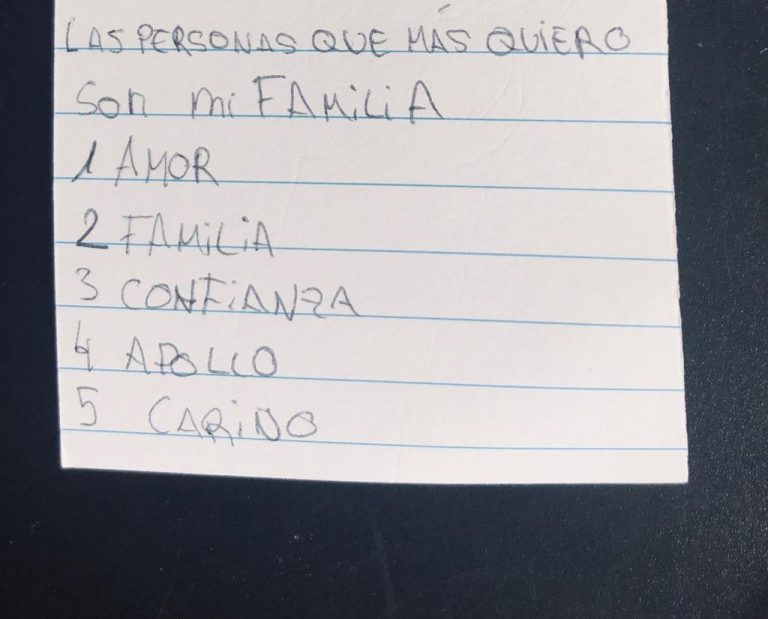 LAS PERSONAS QUE MÁS QUiERO
Son mi FAMiLiA
1 AMOR
2 FAMiLiA
3 CONFiANZA
4 APOLLO
5 CARiNO